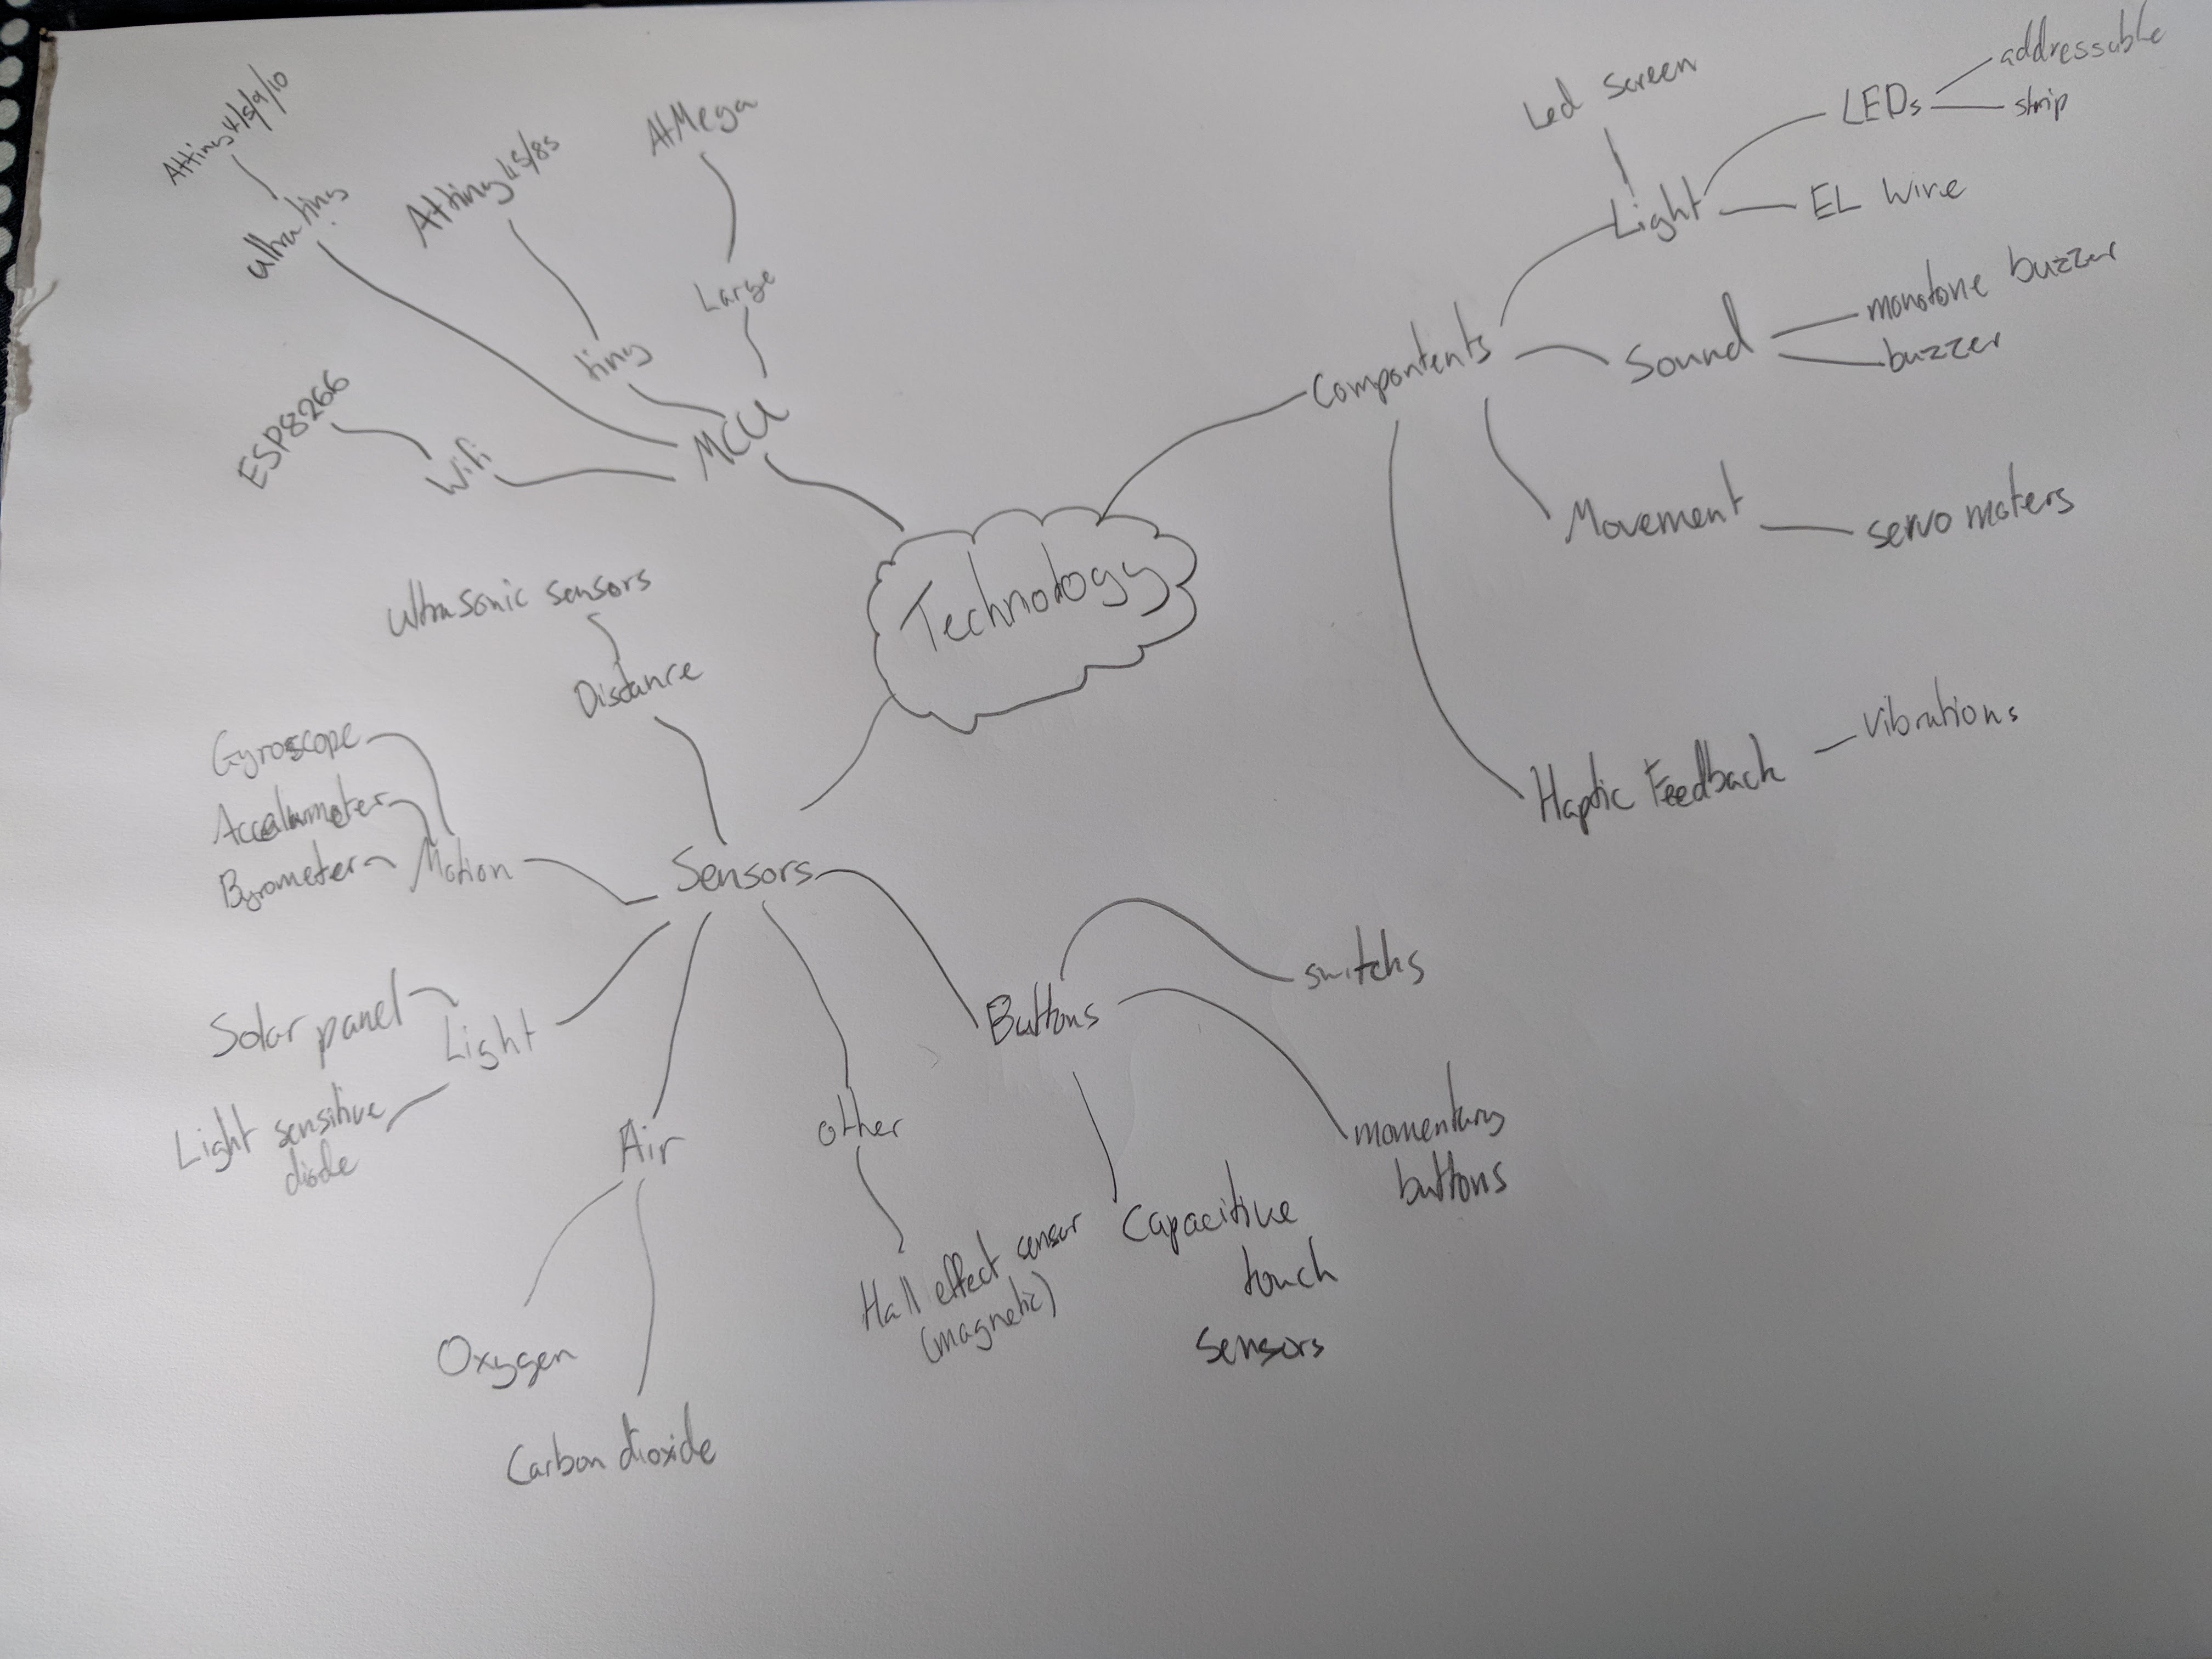 Attiny4/5/9/10
ultra tiny
Attiny45/85
tiny
AtMega
Large
ESP8266
Wifi
MCU
Technology
Compontents
Led screen
Light
LEDs
addressable
strip
EL Wire
Sound
monotone buzzer
buzzer
Movement
servo moters
Haptic Feedback
Vibrations
ultrasonic sensors
Distance
Gyroscope
Motion
Sensors
Solar panel
Light
Light sensitive
diode
Air
Oxygen
Carbon dioxide
other
Hall effect sensor
(magnetic)
Buttons
switchs
momentary
buttons
Capacitive
touch
Sensors